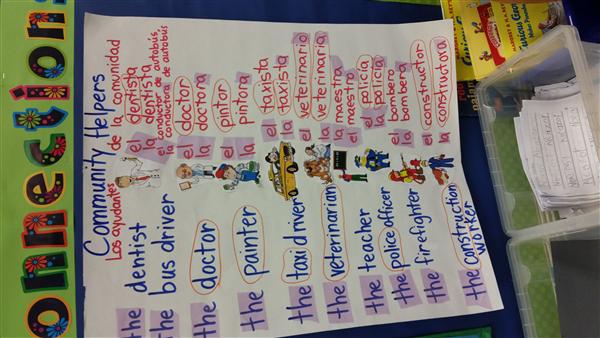 onnections
Community Helpers
Los ayudantes de la comunidad
the dentist
el dentista
la dentista
the bus driver
el conductor de autobús,
la conductora de autobus
the doctor
el doctor
la doctora
the painter
el pintor
la pintora
the taxi driver
el taxista
la taxista
the veterinarian
el veterinario
la veterinaria
the teacher
la maestra
el maestro
the police officer
el policía
la policía
the firefighter
el bombero
la bombera
the construction worker
el constructor
la constructora
Curious George